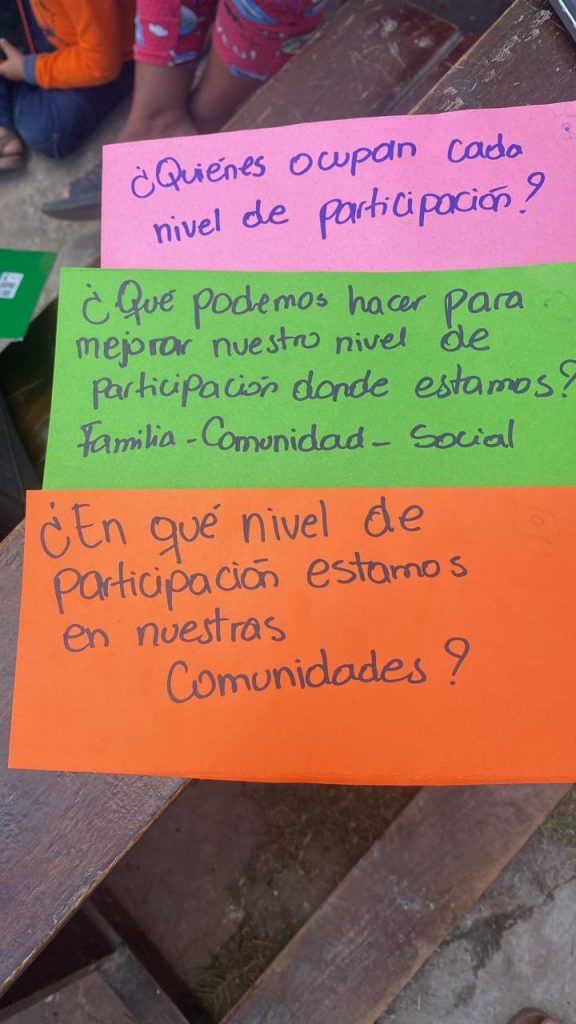 ¿Quiénes ocupan cada
nivel de participación?
¿Qué podemos hacer para
mejorar nuestro nivel de
participación donde estamos?
Familia - Comunidad - Social
¿En qué nivel de
participación estamos
en nuestras
Comunidades?